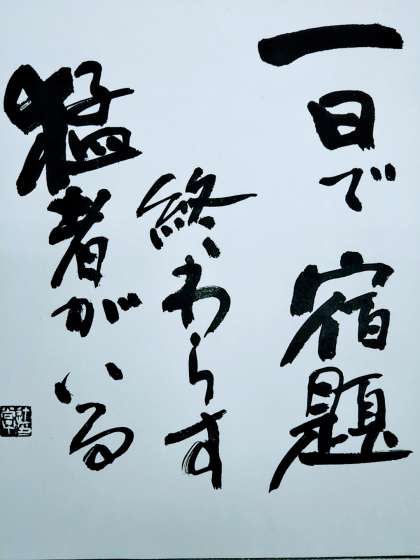 一日で宿題
終わらす
猛者がいる